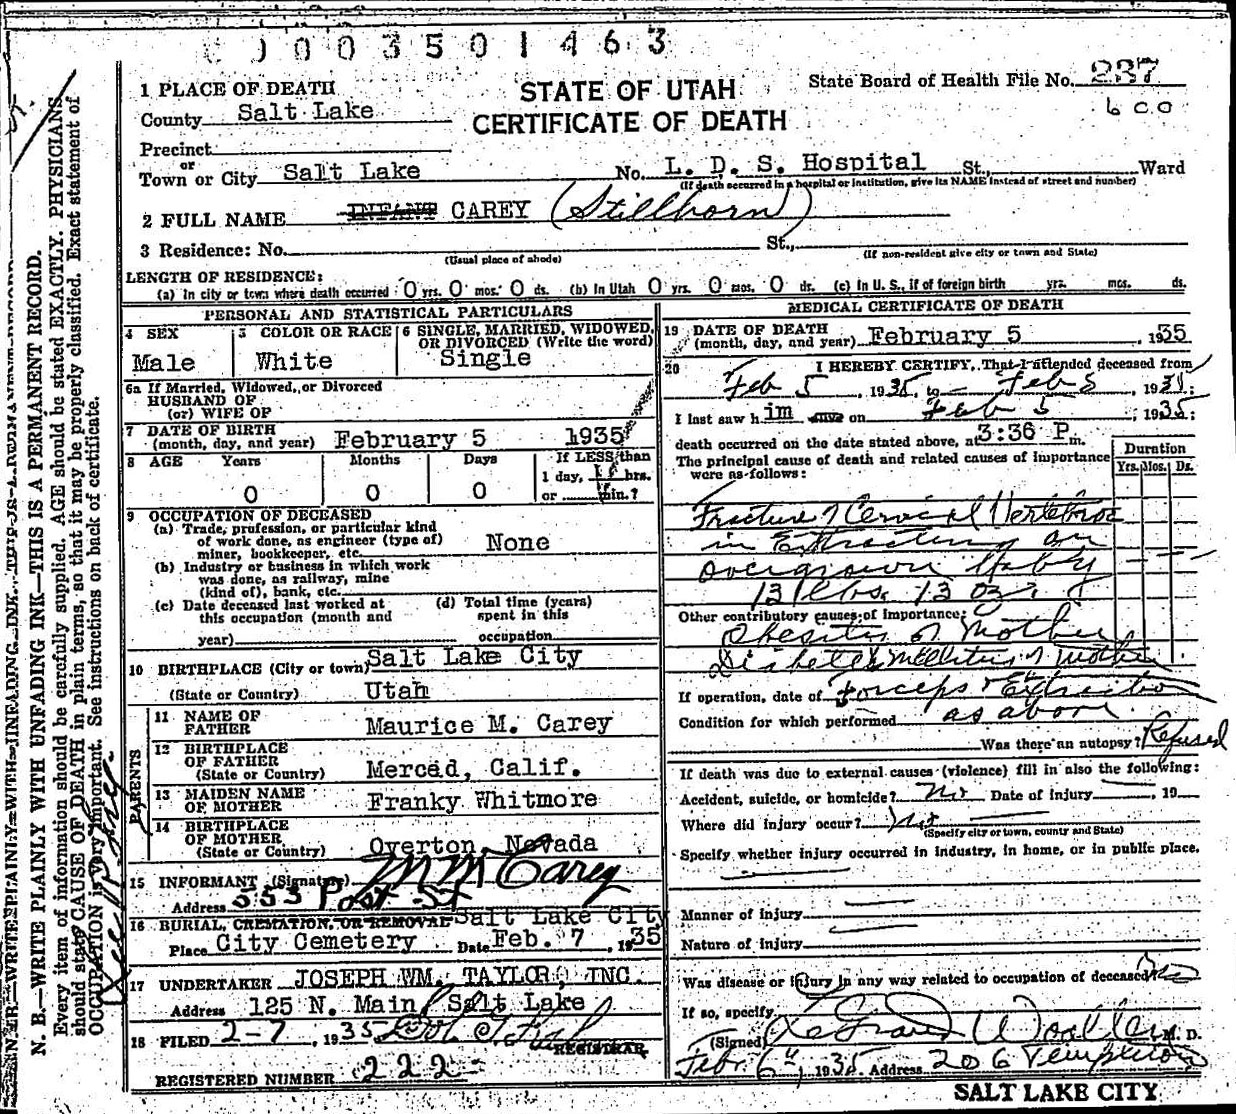 0003501463
State Board of Health File No. 237
600
STATE OF UTAH
CERTIFICATE OF DEATH
1 PLACE OF DEATH
County Salt Lake
Precinct
or
Town or City Salt Lake No. L. D. S. Hospital St., Ward
(If death occurred in a hospital or institution, give its NAME instead of street and number)
2 FULL NAME INFANT CAREY (Stillborn)
3 Residence: No. St.,
(Usual place of abode) (If non-resident give city or town and State)
LENGTH OF RESIDENCE:
(a) In city or town where death occurred 0 yrs. 0 mos. 0 ds. (b) In Utah 0 yrs. 0 mos. 0 ds. (c) In U. S., if of foreign birth yrs. mos. ds.
PERSONAL AND STATISTICAL PARTICULARS
4 SEX
Male
5 COLOR OR RACE
White
6 SINGLE, MARRIED, WIDOWED,
OR DIVORCED (Write the word)
Single
6a If Married, Widowed, or Divorced
HUSBAND OF
(or) WIFE OF
7 DATE OF BIRTH
(month, day, and year) February 5 1935
8 AGE Years Months Days If LESS than
1 day, hrs.
0 0 0 or min.?
9 OCCUPATION OF DECEASED
(a) Trade, profession, or particular kind
of work done, as engineer (type of)
miner, bookkeeper, etc. None
(b) Industry or business in which work
was done, as railway, mine
(kind of), bank, etc.
(c) Date deceased last worked at
this occupation (month and
year)
(d) Total time (years)
spent in this
occupation
10 BIRTHPLACE (City or town) Salt Lake City
(State or Country) Utah
PARENTS
11 NAME OF
FATHER Maurice M. Carey
12 BIRTHPLACE
OF FATHER
(State or Country) Merced, Calif.
13 MAIDEN NAME
OF MOTHER Franky Whitmore
14 BIRTHPLACE
OF MOTHER
(State or Country) Overton, Nevada
15 INFORMANT (Signature) M M Carey
Address 553 Post St
16 BURIAL, CREMATION, OR REMOVAL Salt Lake City
Place City Cemetery Date Feb. 7, 1935
17 UNDERTAKER JOSEPH WM. TAYLOR, INC.
Address 125 N. Main Salt Lake
18 FILED 2-7, 1935
REGISTRAR
REGISTERED NUMBER 222
MEDICAL CERTIFICATE OF DEATH
19 DATE OF DEATH
(month, day, and year) February 5, 1935
20 I HEREBY CERTIFY, That I attended deceased from
Feb 5, 1935, to Feb 5 1935;
I last saw him alive on Feb 5, 1935;
death occurred on the date stated above, at 3:36 P m.
The principal cause of death and related causes of importance
were as follows:
Duration
Yrs. Mos. Ds.
Fracture of Cervical Vertebrae
in Extracting an
overgrown baby
13 lbs. 13 oz.
Other contributory causes of importance:
Obesity of Mother
Diabetes mellitus of mother
If operation, date of Forceps & Extraction
Condition for which performed as above.
Was there an autopsy? Refused
If death was due to external causes (violence) fill in also the following:
Accident, suicide, or homicide? No Date of injury, 19
Where did injury occur? No
(Specify city or town, county and State)
Specify whether injury occurred in industry, in home, or in public place.
Manner of injury
Nature of injury
Was disease or injury in any way related to occupation of deceased? No
If so, specify
(Signed) LeGrand Woolley M. D.
Febr. 6th, 1935 Address 206 Templeton
SALT LAKE CITY
N. B.—WRITE PLAINLY WITH UNFADING INK—THIS IS A PERMANENT RECORD.
Every item of information should be carefully supplied. AGE should be stated EXACTLY. PHYSICIANS
should state CAUSE OF DEATH in plain terms, so that it may be properly classified. Exact statement of
OCCUPATION is very important. See instructions on back of certificate.